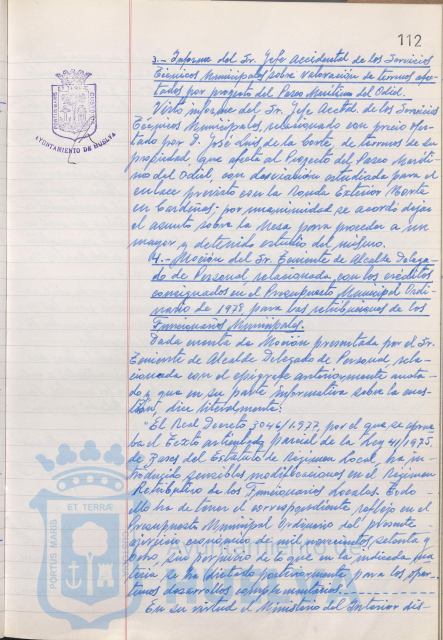 112
3.- Informe del Sr. Jefe Accidental de los Servicios
Técnicos Municipales sobre valoración de terrenos afec-
tados por proyecto del Paseo Marítimo del Odiel.
Visto informe del Sr. Jefe Acctal. de los Servicios
Técnicos Municipales, relacionado con precio ofer-
tado por D. José Luis de la Corte, de terrenos de su
propiedad, que afecta al Proyecto del Paseo Maríti-
mo del Odiel, con desviación estudiada para el
enlace previsto con la Ronda Exterior Norte
en Cardeñas; por unanimidad, se acordó dejar
el asunto sobre la Mesa para proceder a un
mayor y detenido estudio del mismo.
4.- Moción del Sr. Teniente de Alcalde Delega-
do de Personal, relacionada con los créditos
consignados en el Presupuesto Municipal Ordi-
nario de 1978 para las retribuciones de los
Funcionarios Municipales.
Dada cuenta de Moción presentada por el Sr.
Teniente de Alcalde Delegado de Personal, rela-
cionada con el epígrafe anteriormente anota-
do y que en su parte informativa sobre la cues-
tión, dice literalmente:
"El Real Decreto 3046/1.977, por el que se aprue-
ba el Texto articulado parcial de la Ley 41/1975,
de Bases del Estatuto de Régimen Local, ha in-
troducido sensibles modificaciones en el Régimen
Retributivo de los Funcionarios Locales. Todo
ello ha de tener el correspondiente reflejo en el
Presupuesto Municipal Ordinario del presente
ejercicio económico de mil novecientos setenta y
ocho, sin perjuicio de lo que en la indicada ma-
teria se ha dictado posteriormente, para los opor-
tunos desarrollos complementarios.
En su virtud el Ministerio del Interior dis-
AYUNTAMIENTO DE HUELVA
PORTUS MARIS
ET TERRÆ
Ayuntamiento de
HUELVA